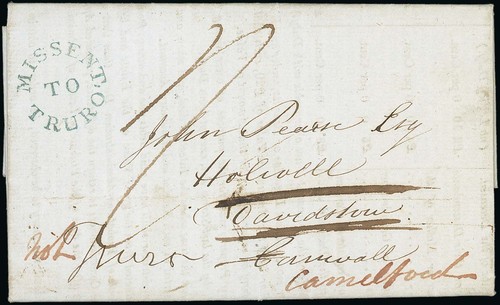 MISSENT
TO
TRURO
7
John Pearse Esq
Holwell
Davidstow
not Truro Cornwall
Camelford